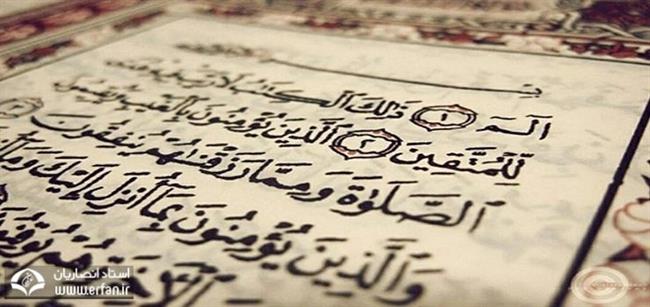 الٓمٓ ۝١ ذَٰلِكَ ٱلْكِتَٰبُ لَا رَيْبَ فِيهِ هُدًى
لِّلْمُتَّقِينَ ۝٢ ٱلَّذِينَ يُؤْمِنُونَ بِٱلْغَيْبِ وَيُقِيمُونَ
ٱلصَّلَوٰةَ وَمِمَّا رَزَقْنَٰهُمْ يُنفِقُونَ ۝٣
وَٱلَّذِينَ يُؤْمِنُونَ بِمَآ أُنزِلَ إِلَيْكَ وَمَآ
استاد انصاریان
www.erfan.ir